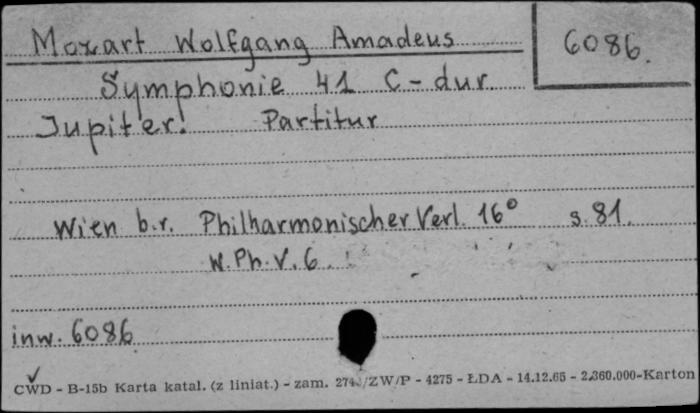 Mozart Wolfgang Amadeus
6086.
Symphonie 41 C-dur
Jupiter! Partitur
Wien b.r. Philharmonischer Verl. 16° s. 81.
W.Ph.V. 6.
inw. 6086
CWD - B-15b Karta katal. (z liniat.) - zam. /ZW/P - 4275 - ŁDA - 14.12.65 - 2.360.000-Karton